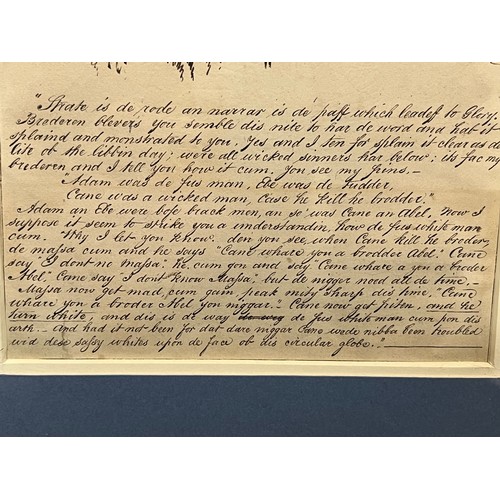 "Strate is de rode an narrar is de paff which leadef to Glory.
Brederen blevers you semble dis nite to har de word and hab it
splaind and monstrated to you. Yes and I ten for splain it clear as de
lite ob the libbin day; were all wicked sinners har below; its fac my
brederen and I tell you how it cum. You see my frins.–
"Adam was de fus man, Ebe was de tudder,
Cane was a wicked man, Case he kill he brodder."
Adam an Ebe were bofe brack men, an so was Cane an Abel. Now I
suppose it seem to strike you a understandin, how de fus white man
cum. Why I let you know. den you see, when Cane kill he broder,
de massa cum and he says "Cane whare you a brodder Abel." Cane
say "I dont no Massa." He cum gon and say "Cane whare a you a broder
Abel". Cane say "I dont know Massa", but de niggar noed all de time.–
Massa now get mad, cum guin, peak mity sharp dis time; "Cane
whare you a broder Abel you niggar." Cane now get friten, and he
turn white, and dis is de way de fus white man cum pon dis
arth.– And had it not been for dat dare niggar Cane wede nibba been troubled
wid dese sassy whites upon de face ob dis circular globe."–